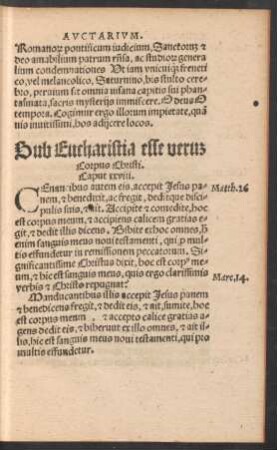 AVCTARIVM.
Romanorꝝ pontificum iudicium, Sanctorꝫ &
deo amabilium patrum r̃nsa, ac studiorꝝ genera
lium condemnationes Vt iam vnicuiqꝫ freneti
co, vel melancolico, Saturnino, bis stulto cere-
bro, peruium sit omnia insana capitis sui phan
tasmata, sacris mysterijs immiscere. O deus O
tempora. Cogimur ergo illorum impietate, quã
uis inuitissimi, hos adijcere locos.
Sub Eucharistia esse verũ
Corpus Christi.
Caput xxviii.
CEnan ibus autem eis, accepit Jesus pa
nem, & benedixit, ac fregit, deditqꝫ disci
pulis suis, & ait. Accipite & comedite, hoc
est corpus meum, & accipiens calicem gratias e-
git, & dedit illis dicens. Bibite ex hoc omnes, h̃
enim sanguis meus noui testamenti, qui ꝓ mul
tis effundetur in remissionem peccatorum. Si-
gnificantissime Christus dixit, hoc est corpꝰ me
um, & hic est sanguis meus, quis ergo clarissimis
verbis & Christo repugnat?
Manducantibus illis accepit Jesus panem
& benedicens fregit, & dedit eis, & ait, sumite, hoc
est corpus meum & accepto calice gratias a-
gens dedit eis, & biberunt ex illo omnes, & ait il
lis, hic est sanguis meus noui testamenti, qui pro
multis effundetur.
Matth.26
Marc.14.